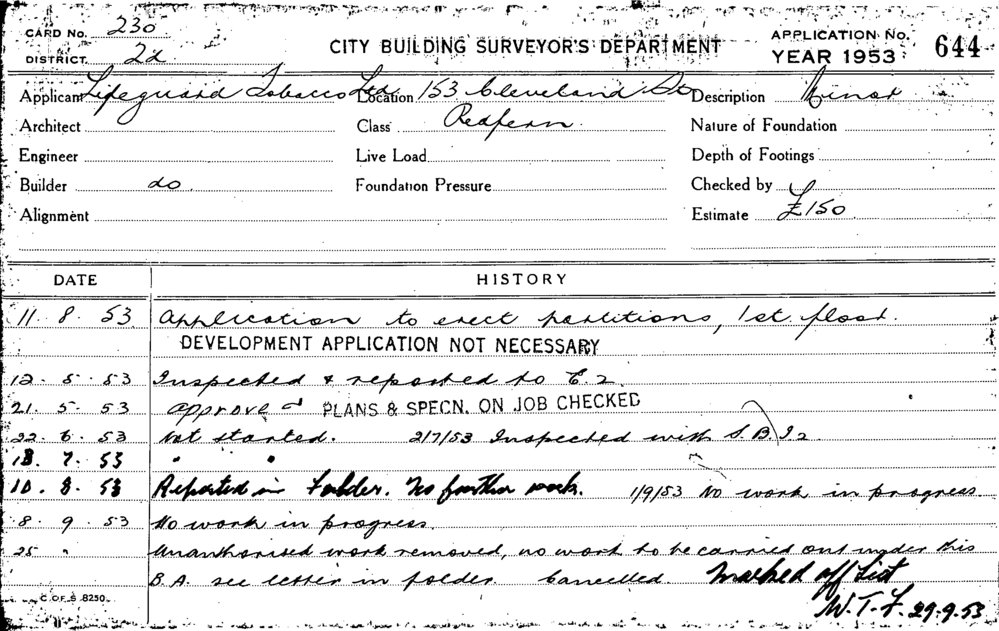 CARD No. 230
CITY BUILDING SURVEYOR'S DEPARTMENT
APPLICATION No. 644
DISTRICT. 2d
YEAR 1953
Applicant Lifeguard Tobacco Ltd Location 153 Cleveland St Description Minor
Architect Class Redfern Nature of Foundation
Engineer Live Load Depth of Footings
Builder do Foundation Pressure Checked by
Alignment Estimate £150
DATE HISTORY
11. 8. 53 Application to erect partitions, 1st. floor.
DEVELOPMENT APPLICATION NOT NECESSARY
12. 5. 53 Inspected & reported to E.2.
21. 5. 53 approved PLANS & SPECN. ON JOB CHECKED
22. 6. 53 Not started. 2/7/53 Inspected with S.B.I2
13. 7. 53 " "
10. 8. 53 Reported in Folder. No further work. 1/9/53 No work in progress.
8. 9. 53 No work in progress.
25 " Unauthorised work removed, no work to be carried out under this
B.A. see letter in folder. Cancelled. Marked off List
C. OF S. 8250. W.T.F. 29.9.53